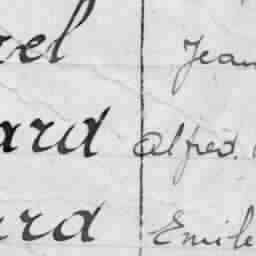 rel Jean
ard Alfred.
rd Emile